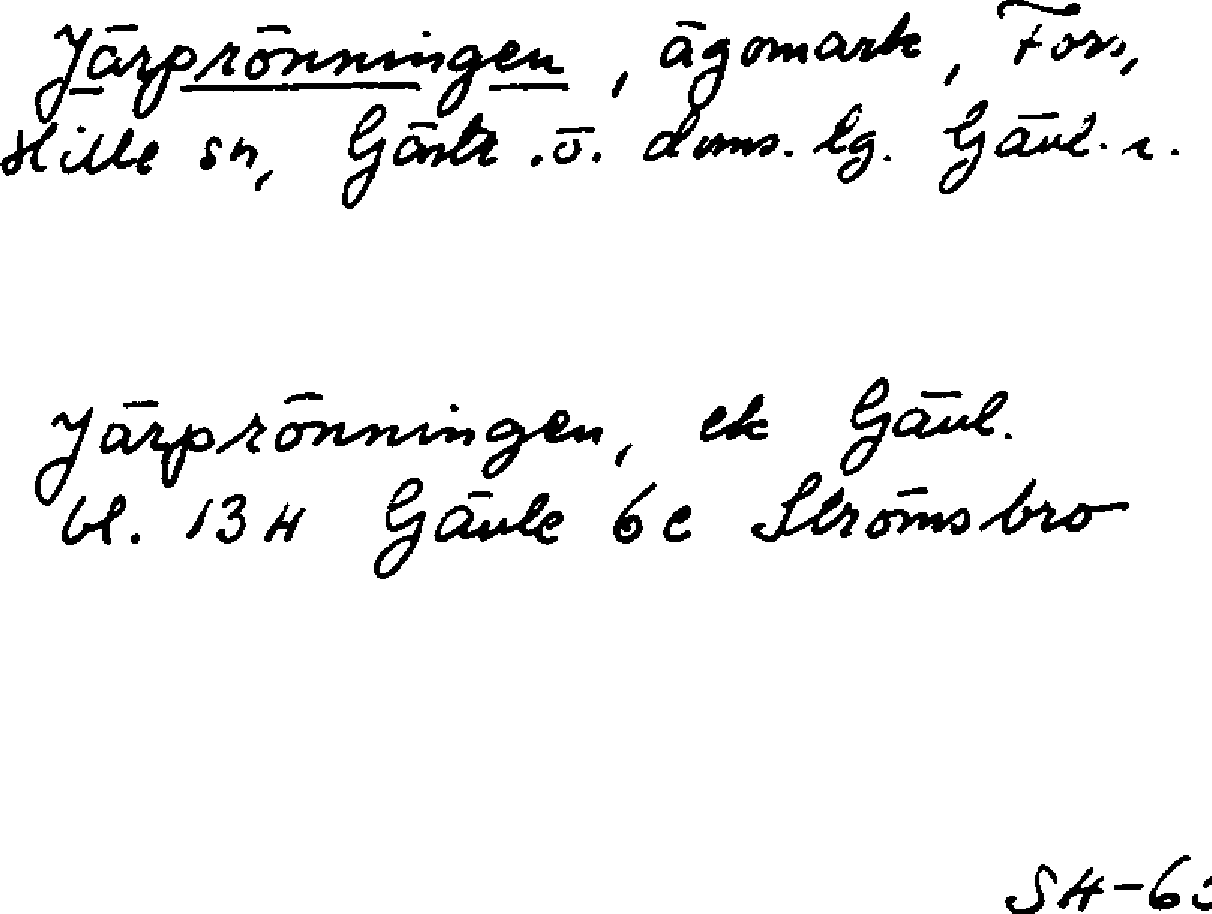 Järprönningen, ägomark, Fors,
Hille sn, Gästr. ö. doms. lg. Gävl. r.
Järprönningen, ek Gävl.
bl. 13H Gävle 6c Strömsbro